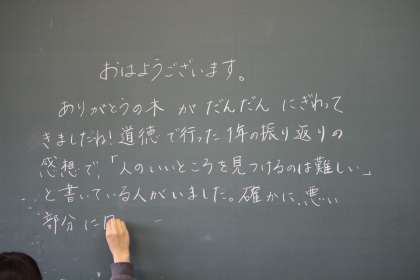 おはようございます。
ありがとうの木 が だんだん にぎわって
きましたね！道徳で行った1年の振り返りの
感想で、「人のいいところを見つけるのは難しい」
と書いている人がいました。確かに、悪い
部分に目